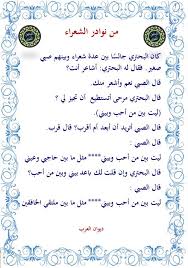 من نوادر الشعراء
كان البحتري جالسًا بين عدة شعراء وبينهم صبي
صغير. فقال له البحتري: أشاعر أنت؟
قال الصبي نعم وأشعر منك.
قال البحتري مرحى أتستطيع أن تجيز لي ؟
(ليت بين من أحب وبيني)
قال الصبي أتريد أن أبعد أم أقرب؟ قال قرب.
قال الصبي :
ليت بين من أحب وبيني**** مثل ما بين حاجبي وعيني
قال البحتري وإن قلت لك باعد بيني وبين من أحب؟
قال الصبي :
ليت بين من أحب وبيني**** مثل ما بين ملتقى الخافقين
ديوان العرب